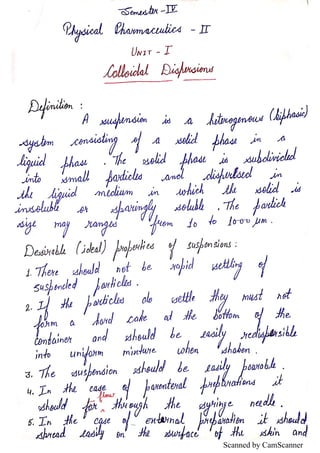 Semester-IV
Physical Pharmaceutics - II
UNIT - I
Colloidal Dispersions
Definition :
A suspension is a heterogenous (biphasic)
system consisting of a solid phase in a
liquid phase . The solid phase is subdivided
into small particles and dispersed in
the liquid medium in which the solid is
insoluble or sparingly soluble . The particle
size may ranges from 10 to 1000 µm .
Desirable (ideal) properties of suspensions :
1. There should not be rapid settling of
suspended particles .
2. If the particles do settle they must not
form a hard cake at the bottom of the
container and should be easily redispersible
into uniform mixture when shaken .
3. The suspension should be easily pourable .
4. In the case of parenteral preparations it
should flow through the syringe needle .
5. In the case of external preparation it should
spread easily on the surface of the skin and
Scanned by CamScanner